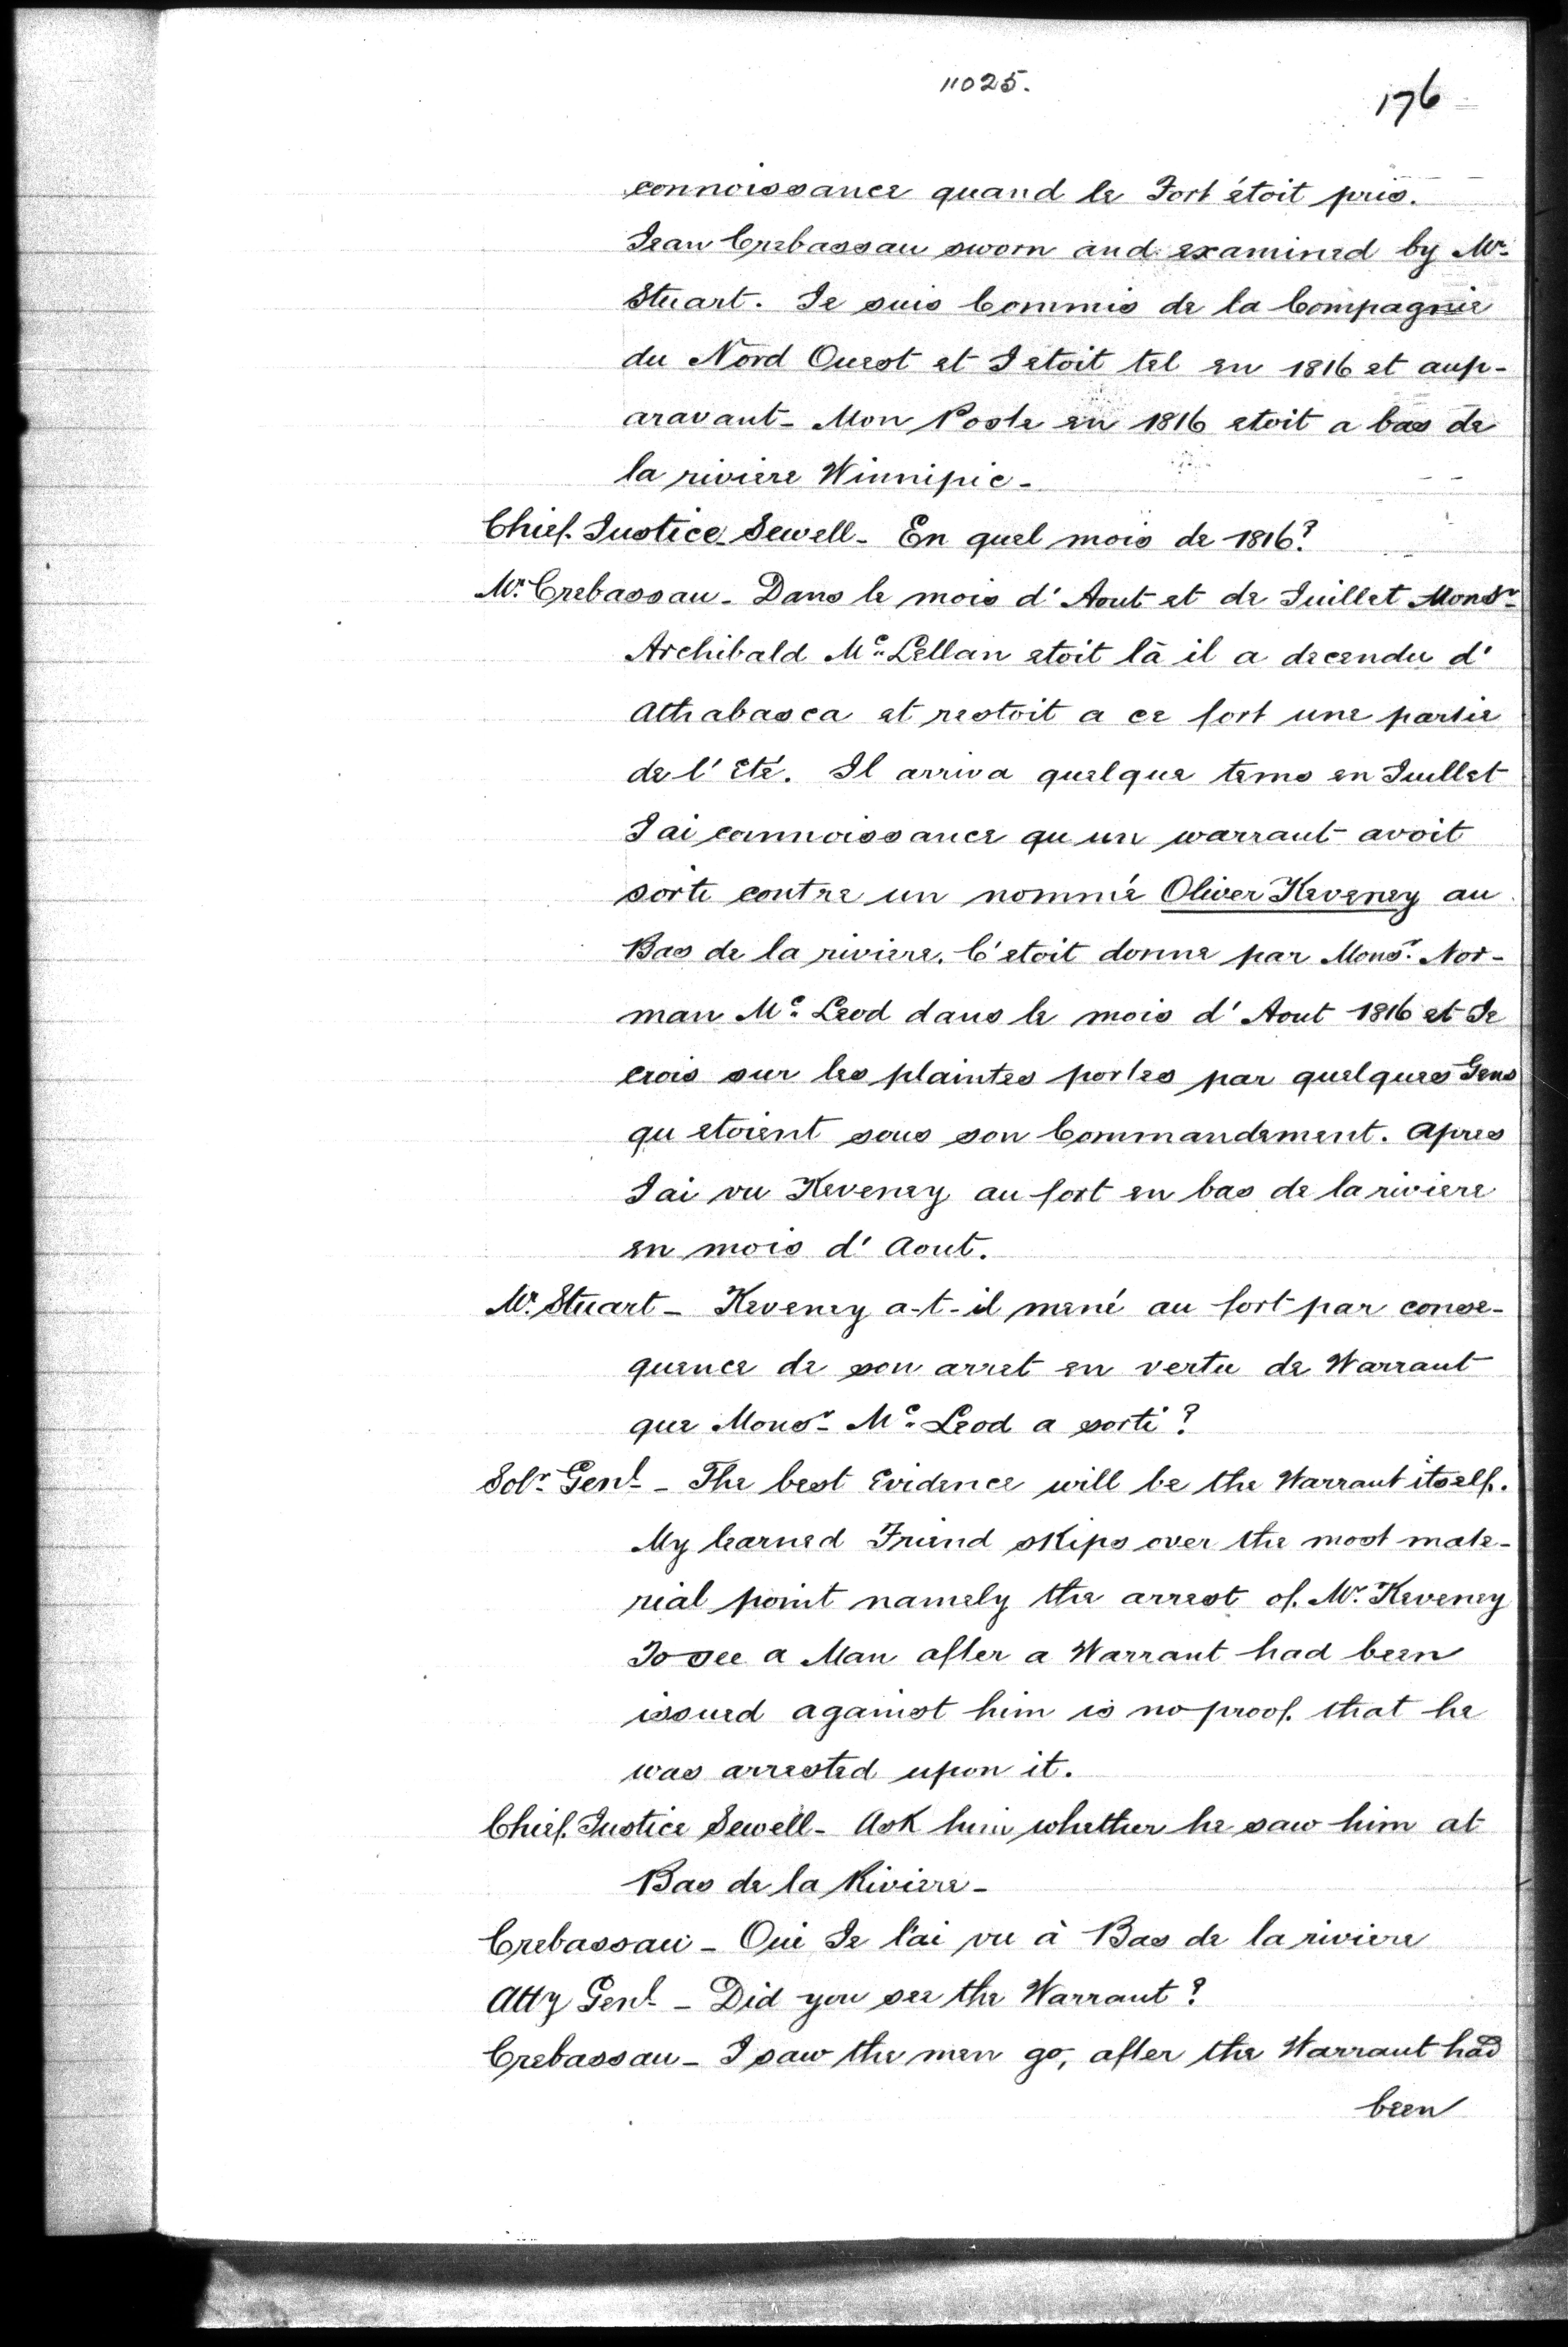 11025.
176
connoissance quand le Fort étoit pris.
Jean Crebassau sworn and examined by Mr.
Stuart. Je suis Commis de la Compagnie
du Nord Ouest et J etoit tel en 1816 et aup-
aravant - Mon Poste en 1816 etoit a bas de
la riviere Winnipic -
Chief Justice Sewell - En quel mois de 1816?
Mr. Crebassau - Dans le mois d' Aout et de Juillet Monsr.
Archibald Mc. Lellan etoit là il a decendu d'
Athabasca et restoit a ce fort une partie
de l' Eté. Il arriva quelque tems en Juillet
J ai connoissance qu un warrant avoit
sorti contre un nommé Oliver Keveney au
Bas de la riviere. C' etoit donne par Monsr. Nor-
man Mc. Leod dans le mois d' Aout 1816 et Je
crois sur les plaintes portes par quelques Gens
qu etoient sous son Commandement. Apres
J ai vu Keveney au fort en bas de la riviere
en mois d' Aout.
Mr. Stuart - Keveney a-t-il mené au fort par conse-
quence de son arret en vertu de Warrant
que Monsr. Mc. Leod a sorti?
Solr. Genl. - The best Evidence will be the Warrant itself.
My learned Friend skips over the most mate-
rial point namely the arrest of Mr. Keveney
To see a Man after a Warrant had been
issued against him is no proof that he
was arrested upon it.
Chief Justice Sewell - Ask him whether he saw him at
Bas de la Riviere -
Crebassau - Oui Je l'ai vu à Bas de la riviere
Atty Genl. - Did you see the Warrant?
Crebassau - I saw the men go, after the Warrant had
been